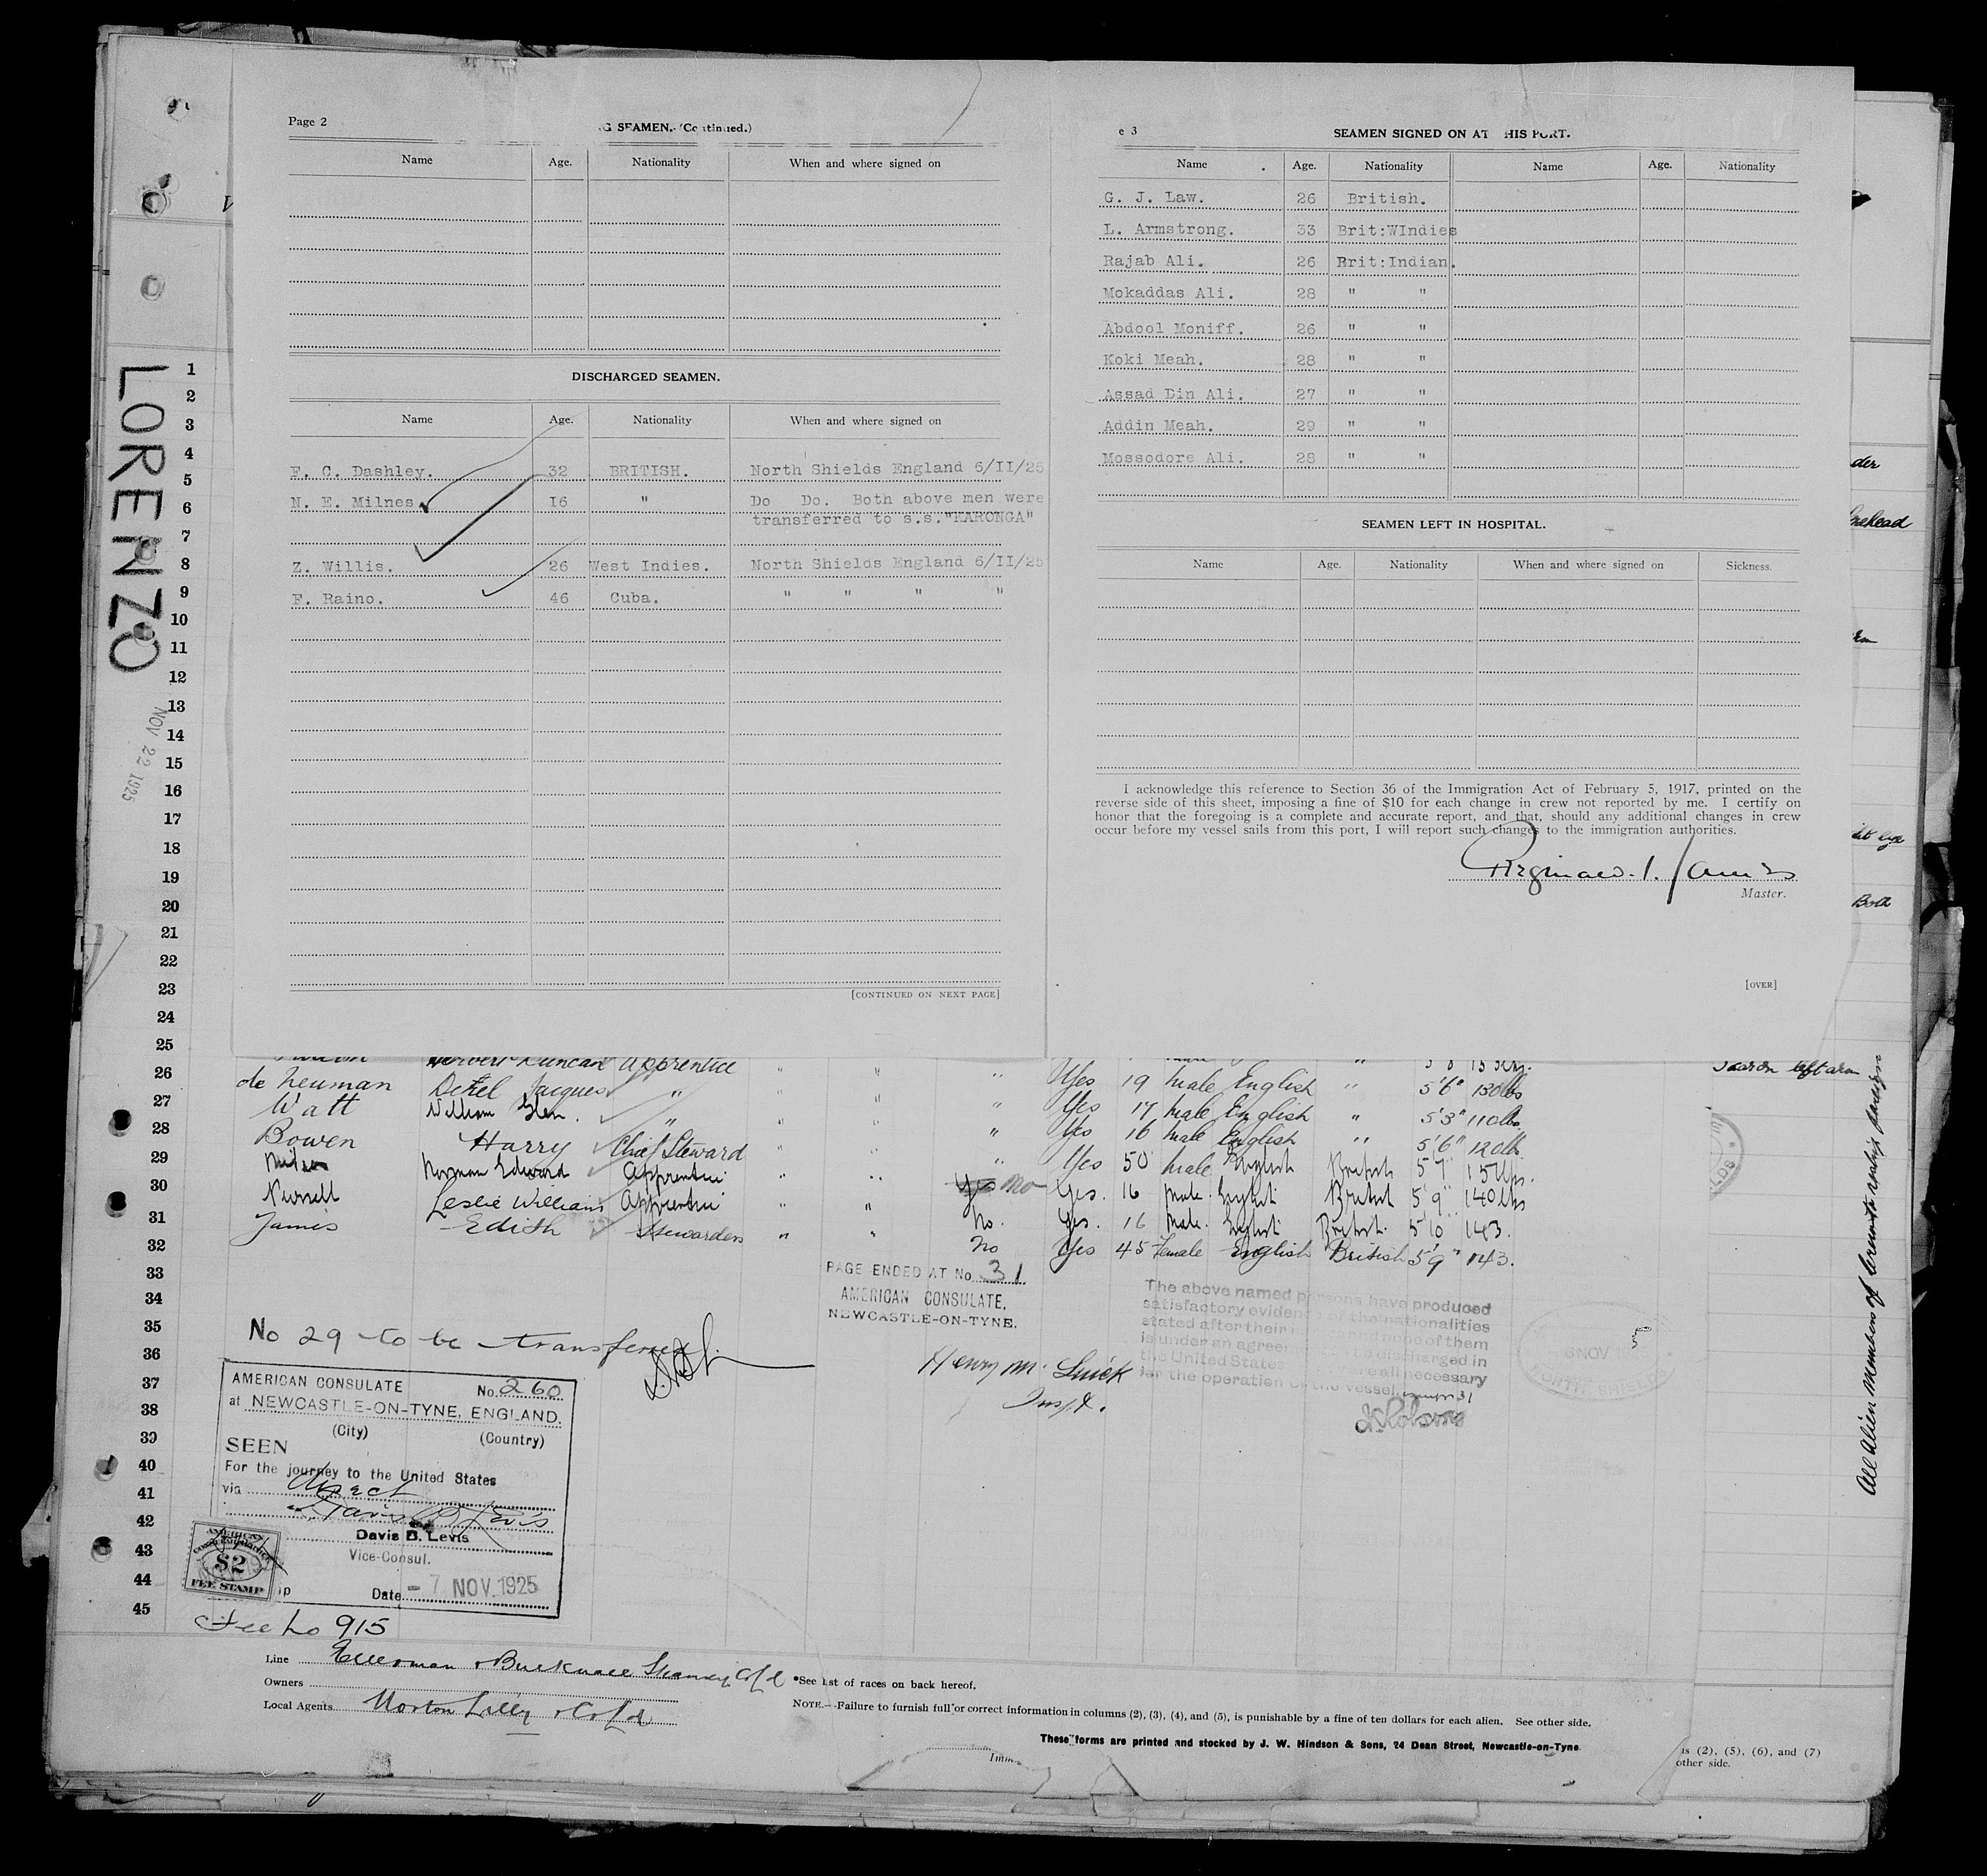 Page 2
G SEAMEN. (Continued.)
Name Age. Nationality When and where signed on
DISCHARGED SEAMEN.
Name Age. Nationality When and where signed on
F. C. Dashley. 32 BRITISH. North Shields England 6/II/25
N. E. Milnes. I6 " Do Do. Both above men were
transferred to s.s."KARONGA"
Z. Willis. 26 West Indies. North Shields England 6/II/25
F. Raino. 46 Cuba. " " " "
[CONTINUED ON NEXT PAGE]
e 3
SEAMEN SIGNED ON AT HIS PORT.
Name Age. Nationality Name Age. Nationality
G. J. Law. 26 British.
L. Armstrong. 33 Brit:WIndies
Rajab Ali. 26 Brit:Indian.
Mokaddas Ali. 28 " "
Abdool Moniff. 26 " "
Koki Meah. 28 " "
Assad Din Ali. 27 " "
Addin Meah. 29 " "
Mossodore Ali. 28 " "
SEAMEN LEFT IN HOSPITAL.
Name Age. Nationality When and where signed on Sickness.
I acknowledge this reference to Section 36 of the Immigration Act of February 5, 1917, printed on the
reverse side of this sheet, imposing a fine of $10 for each change in crew not reported by me. I certify on
honor that the foregoing is a complete and accurate report, and that, should any additional changes in crew
occur before my vessel sails from this port, I will report such changes to the immigration authorities.
Master.
[OVER]
LORENZO
NOV 22 1925
1
2
3
4
5
6
7
8
9
10
11
12
13
14
15
16
17
18
19
20
21
22
23
24
25
26
27
28
29
30
31
32
33
34
35
36
37
38
39
40
41
42
43
44
45
Duncan Apprentice " " "
de Neuman Jacques " " " " Yes 19 Male English " 5'6" 130lbs
Watt William Glen. " " " " Yes 17 Male English " 5'3" 110lbs
Bowen Harry Chief Steward " " " Yes 16 Male English " 5'6" 120lb
Norman Edward Apprentice " " Yes No Yes 50 Male English British 5'7"
Leslie William Apprentice " " No. Yes. 16 Male. English British 5'9" 140lbs
James Edith Stewardess " " No Yes. 16 Male. English British. 5'10" 143.
Yes 45 Female English British 5'9" 143.
PAGE ENDED AT No. 31
AMERICAN CONSULATE,
NEWCASTLE-ON-TYNE.
The above named persons have produced
satisfactory evidence of the nationalities
stated after their
is under an
the United States all necessary
for the operation of the vessel
6 NOV
No 29 to be transferred
Henry M.
Insp.
AMERICAN CONSULATE No. 260
at NEWCASTLE-ON-TYNE, ENGLAND.
(City) (Country)
SEEN
For the journey to the United States
via direct
Davis B. Levis
Davis B. Levis
Vice-Consul.
Date - 7 NOV. 1925
AMERICAN
$2
FEE STAMP
Fee No 915
Line Ellerman & Bucknall
Owners
Local Agents
*See list of races on back hereof.
NOTE.—Failure to furnish full or correct information in columns (2), (3), (4), and (5), is punishable by a fine of ten dollars for each alien. See other side.
These forms are printed and stocked by J. W. Hindson & Sons, 24 Dean Street, Newcastle-on-Tyne.
is (2), (5), (6), and (7)
other side.
left arm
Both